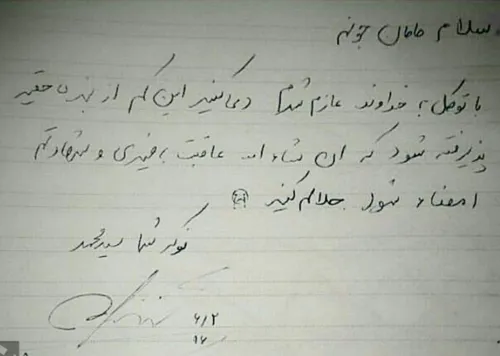 سلام مامان جونم
با توکل به خداوند عازم شدم دعا کنید این کم از بنده حقیر
پذیرفته شود که ان شاء الله عاقبت بخیری و شهادتم
امضاء شود حلالم کنید
نوکر شما سید محمد
۶/۲
۱۶